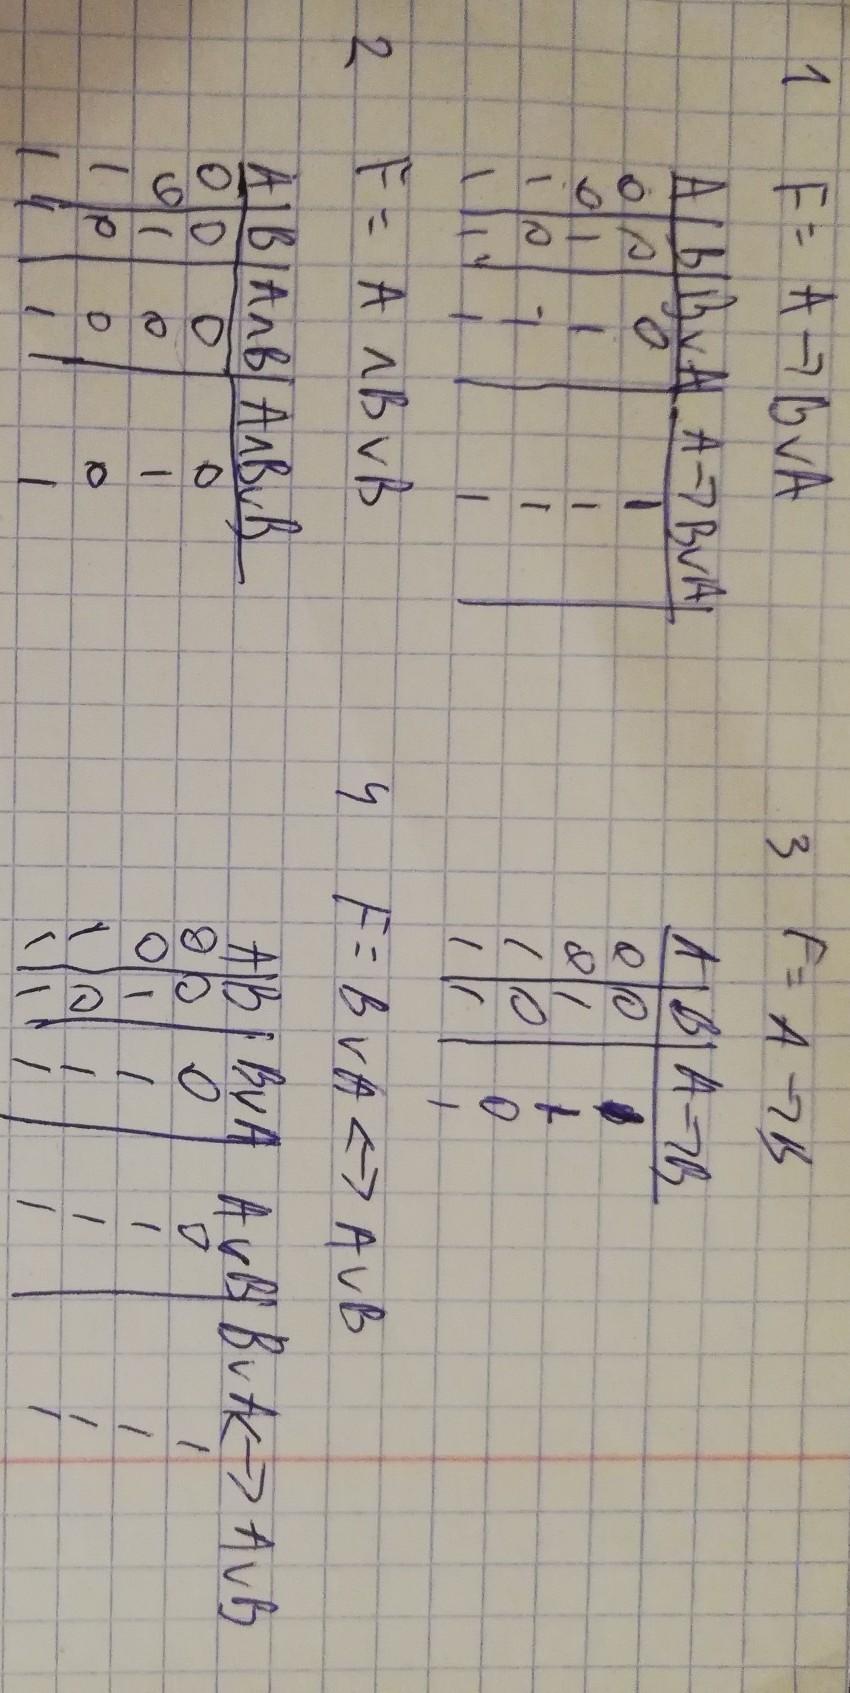 1 F = A → B ∨ A
A | B | B ∨ A | A → B ∨ A
0 0 0 1
0 1 1 1
1 0 1 1
1 1 1 1
2 F = A ∧ B ∨ B
A | B | A ∧ B | A ∧ B ∨ B
0 0 0 0
0 1 0 1
1 0 0 0
1 1 1 1
3 F = A → B
A | B | A → B
0 0
0 1 1
1 0 0
1 1 1
4 F = B ∨ A <-> A ∨ B
A | B | B ∨ A | A ∨ B | B ∨ A <-> A ∨ B
0 0 0 0 1
0 1 1 1 1
1 0 1 1 1
1 1 1 1 1